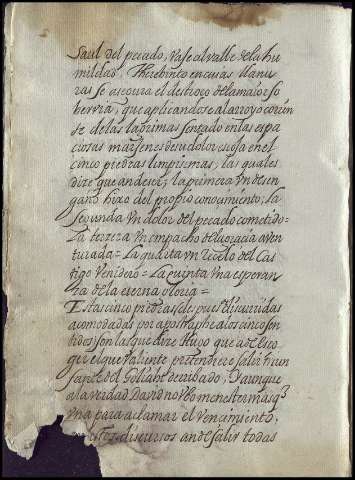 Saul del pecado, vase al valle de la hu
mildad, Therebinto en cuias llanu
ras se asegura el destroço de la maior so
bervia, que aplicandose al arroyo corien
te de las lagrimas sentado en las espa
ciosas marjenes de su dolor escoja en el
cinco piedras limpisimas, las quales
dize que an de ser; la primera vn desen
gaño hixo del propio conocimiento; la
segunda vn dolor del pecado cometido=
La tercera vn empacho de la gracia aven
turada= La quarta vn recelo del Cas
tigo Venidero= La quinta vna esperan
za de la eterna gloria=
Estas cinco piedras despues discurridas
acomodadas por apostrophe a los cinco sen
tidos son las que dize el que a de
el que valiente pretendiere salir triun
fante del Goliath derribado, Y aunque
a la verdad David no vbo menester mas q̃
vna para aclamar el Vencimiento,
discursos an de salir todas